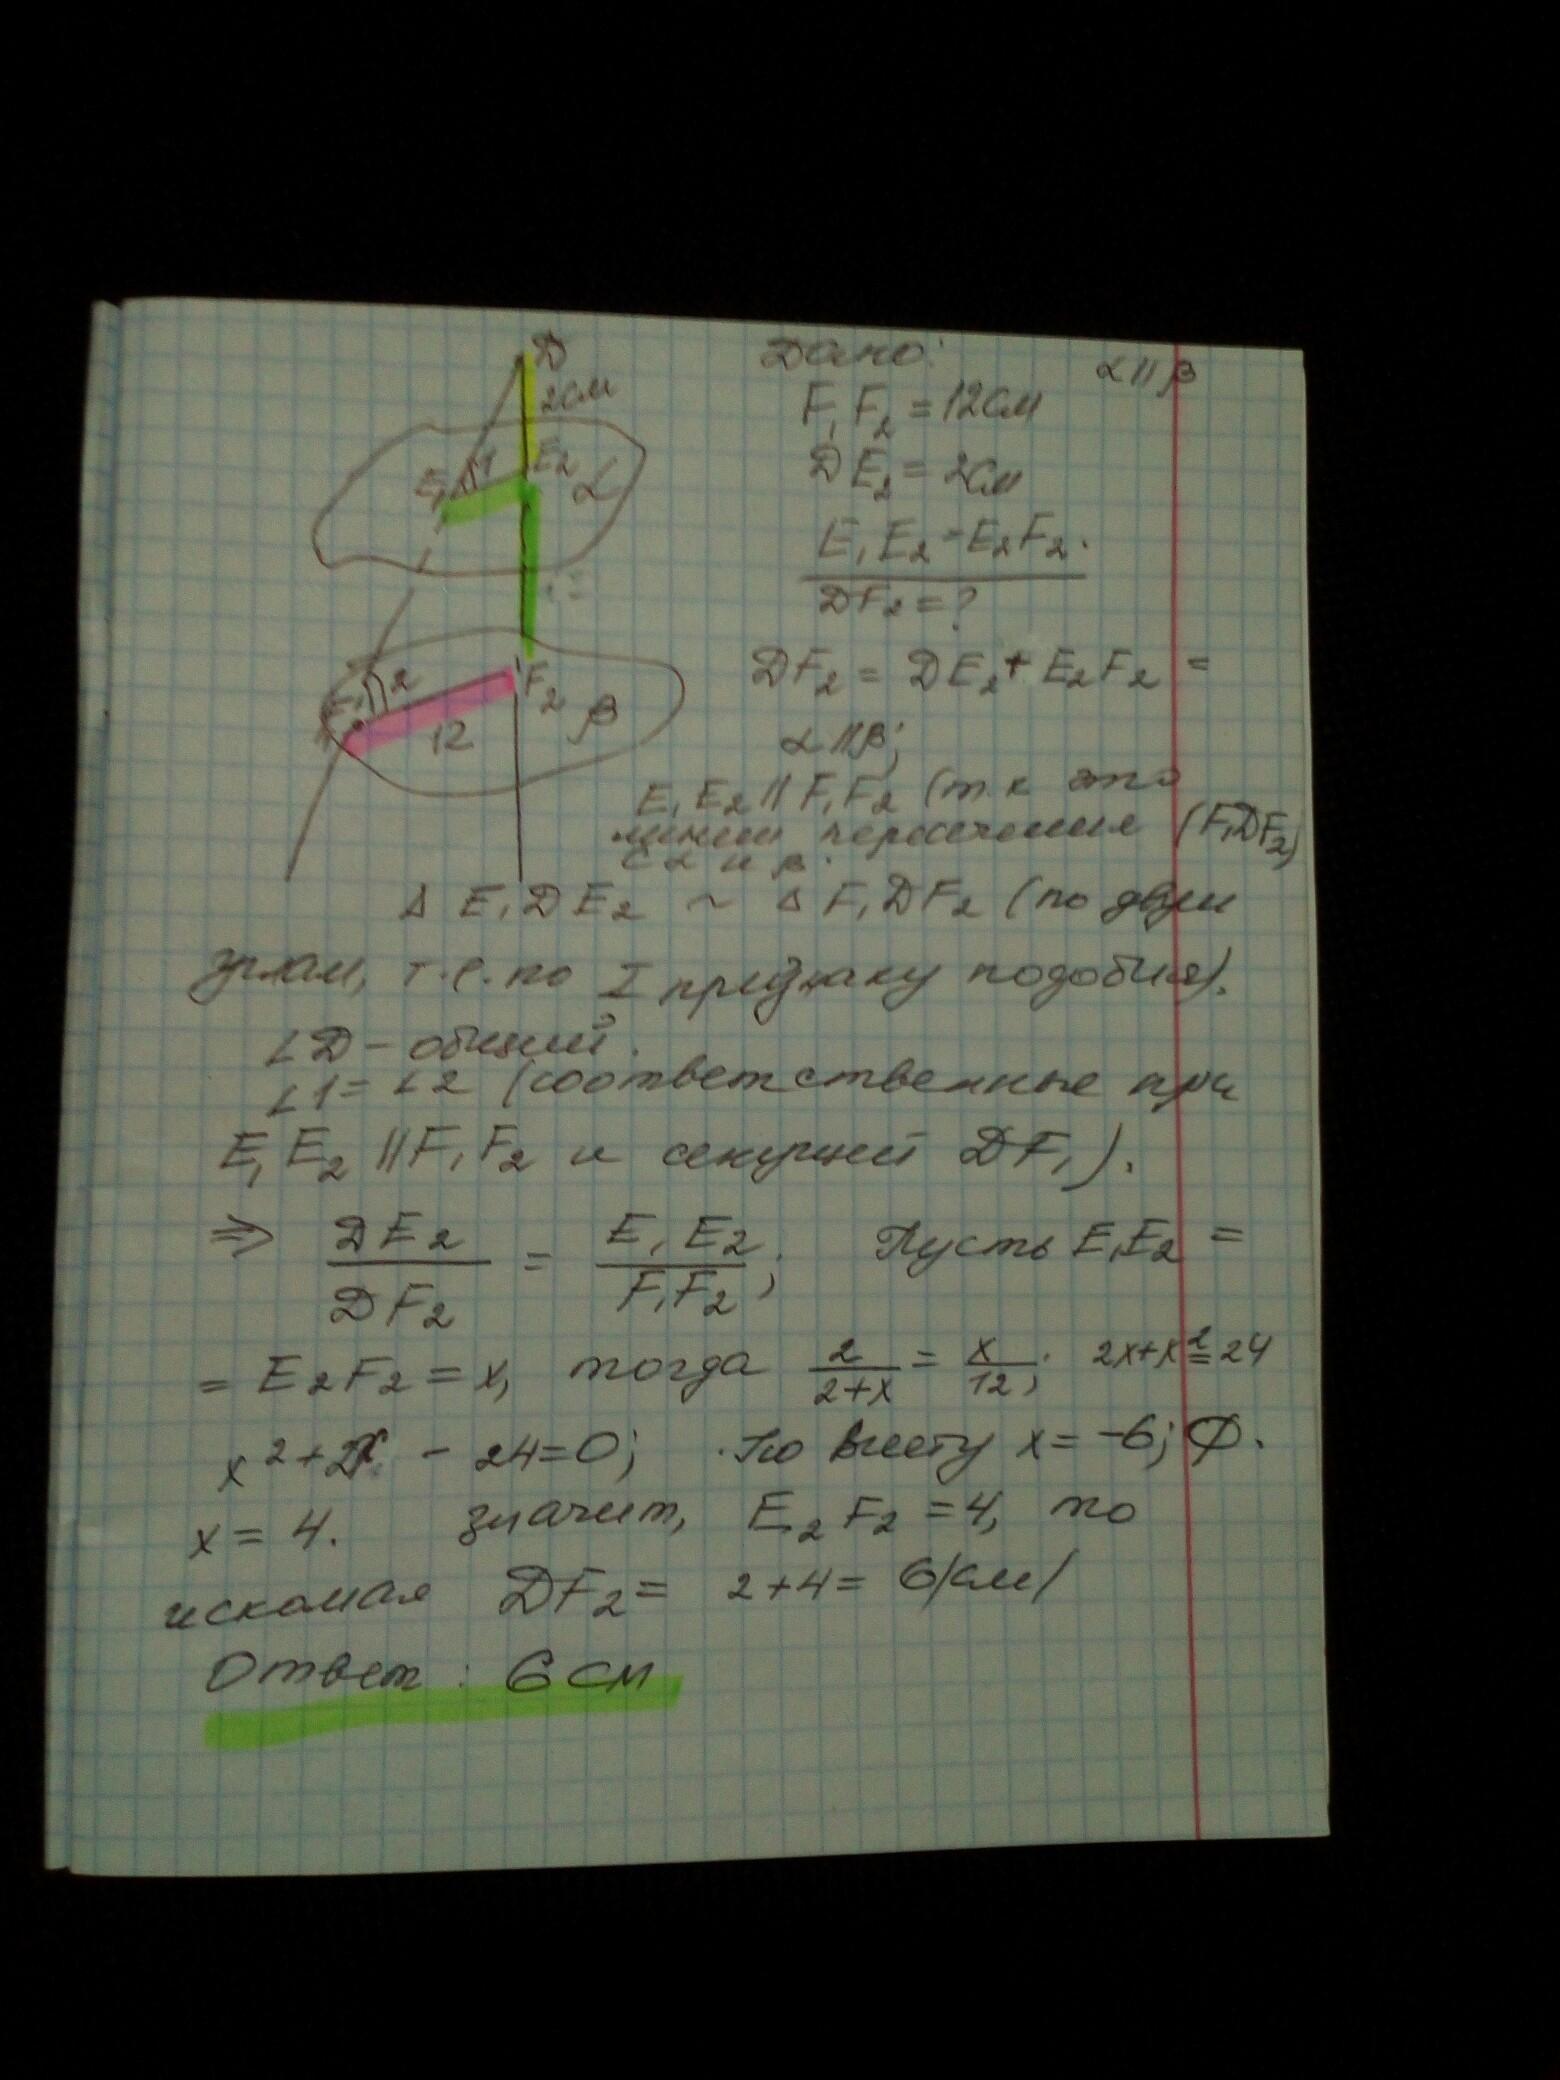 D
2см
E₁ 1 E₂ α
F₁ 2 F₂
12 β
Дано: α || β
F₁F₂ = 12см
DE₂ = 2см
E₁E₂ = E₂F₂.
DF₂ = ?
DF₂ = DE₂ + E₂F₂ =
α || β;
E₁E₂ || F₁F₂ (т.к это
линии пересечения (F₁DF₂)
с α и β.
Δ E₁DE₂ ~ Δ F₁DF₂ (по двум
углам, т.е. по I признаку подобия).
∠D – общий.
∠1 = ∠2 (соответственные при
E₁E₂ || F₁F₂ и секущей DF₁).
⇒ DE₂/DF₂ = E₁E₂/F₁F₂; Пусть E₁E₂ =
= E₂F₂ = x, тогда 2/(2+x) = x/12; 2x+x²=24
x² + 2x - 24 = 0; По Виету x = -6; ∅.
x = 4. значит, E₂F₂ = 4, то
искомая DF₂ = 2+4 = 6/см/
Ответ: 6 см